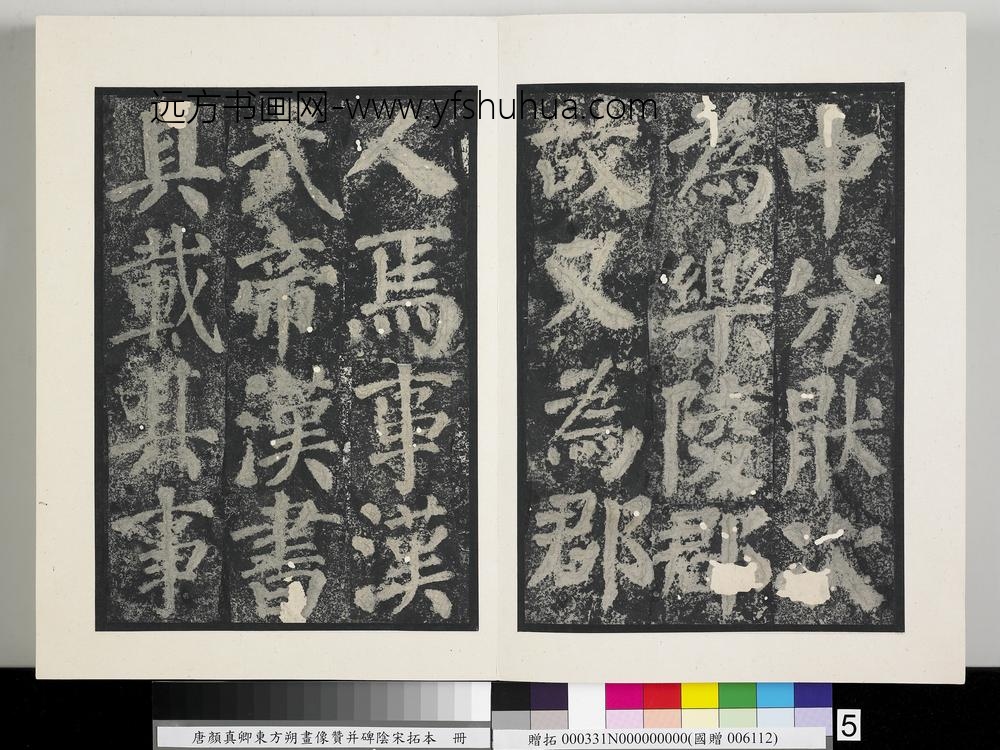 远方书画网-www.yfshuhua.com
中分猒次
為樂陵郡
故又為郡
人焉事漢
武帝漢書
具載其事
唐顏真卿東方朔畫像贊并碑陰宋拓本 冊
贈拓 000331N000000000(國贈 006112)
5